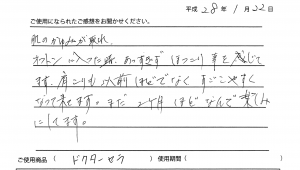 平成 28年 1月 22日
ご使用になられたご感想をお聞かせください。
肌のかゆみが取れ、
オフトンに入った時、あつすぎず ほっこり 事を感じて
ます。肩こりも 以前ほどでなく すごしやすく
なって来てます。まだ 2ヶ月 ほど なんで 楽しみ
にしてます。
ご使用商品( ドクターセラ ) 使用期間( )